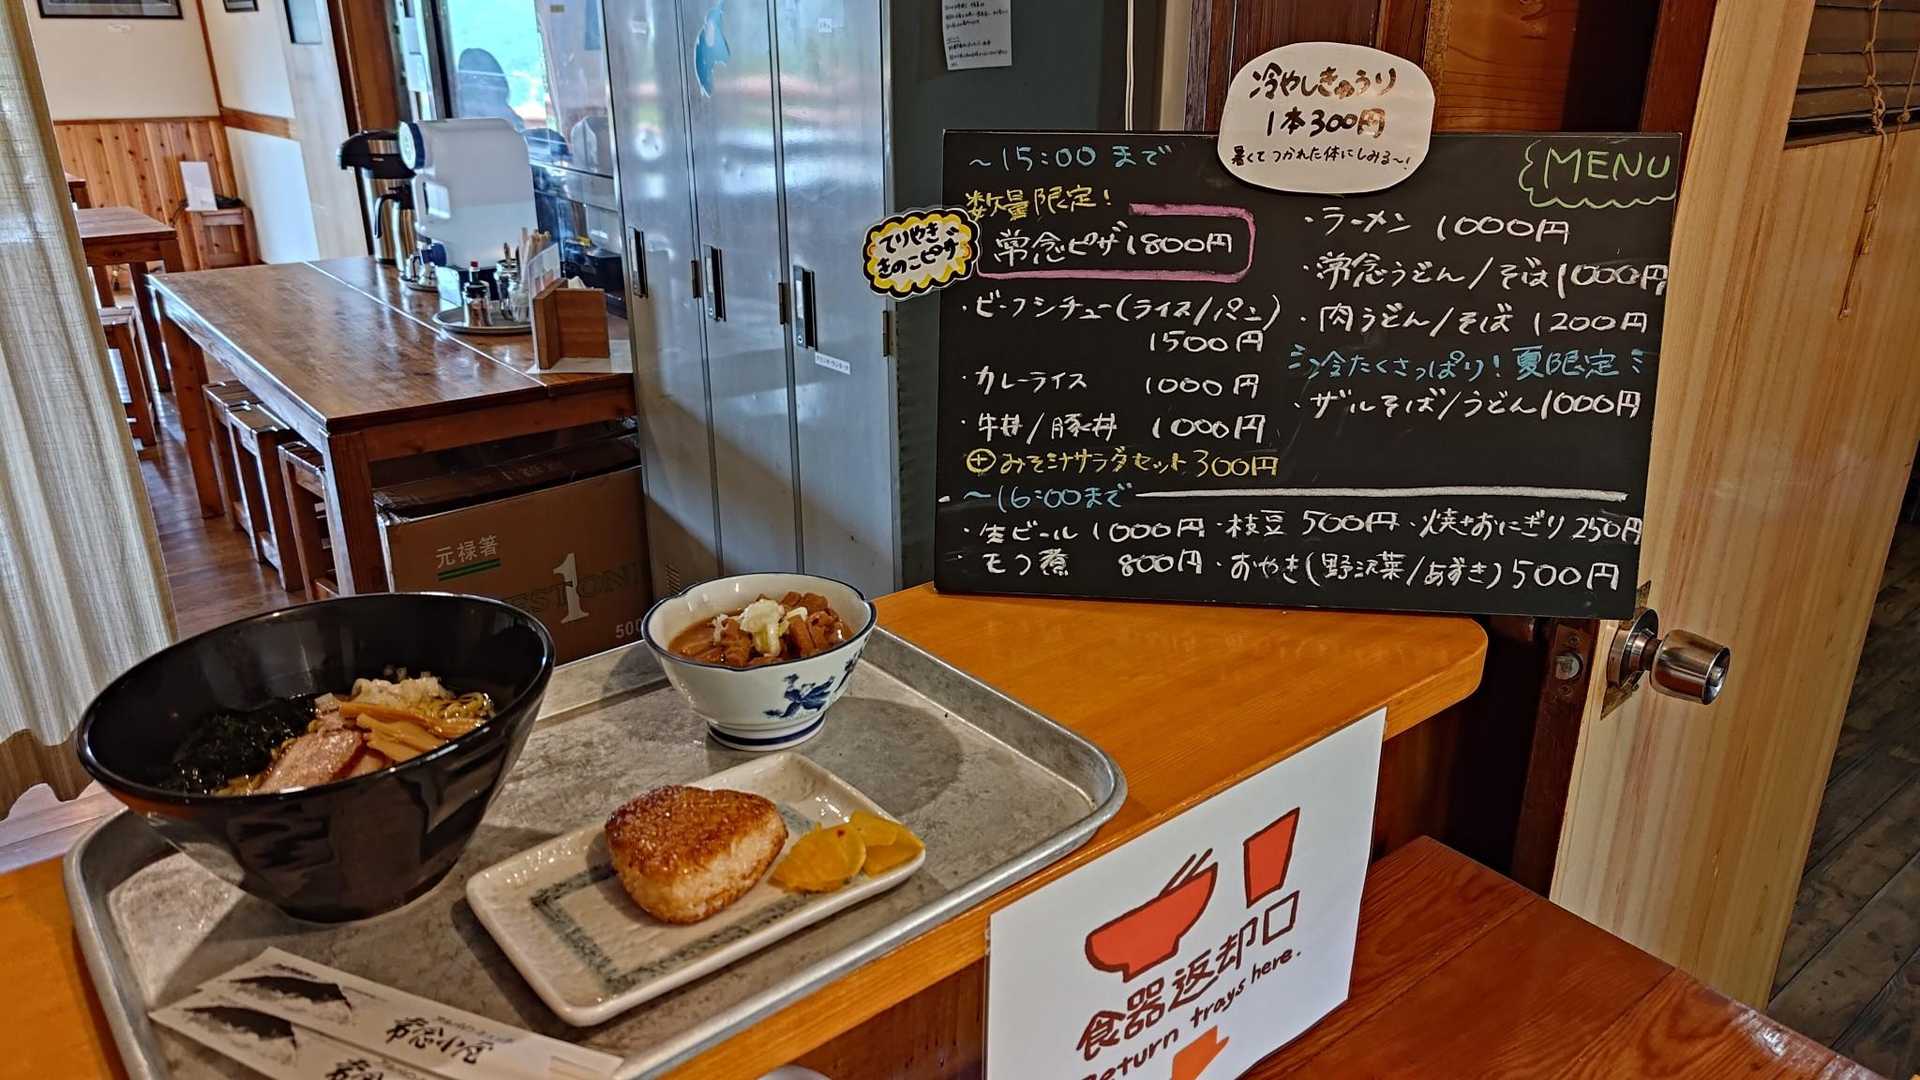 冷やしきゅうり
1本300円
暑くてつかれた体にしみる〜!
MENU
〜15:00まで
数量限定!
てりやき
きのこピザ
常念ピザ1800円
・ビーフシチュー(ライス/パン)
1500円
・カレーライス 1000円
・牛丼/豚丼 1000円
⊕みそ汁サラダセット300円
・ラーメン 1000円
・常念うどん/そば1000円
・肉うどん/そば 1200円
冷たくさっぱり!夏限定
・ザルそば/うどん1000円
〜16:00まで
・生ビール 1000円・枝豆 500円・焼きおにぎり250円
モツ煮 800円・おやき(野沢菜/あずき)500円
元禄箸
1
500
食器返却口
Return trays here.
常念小屋